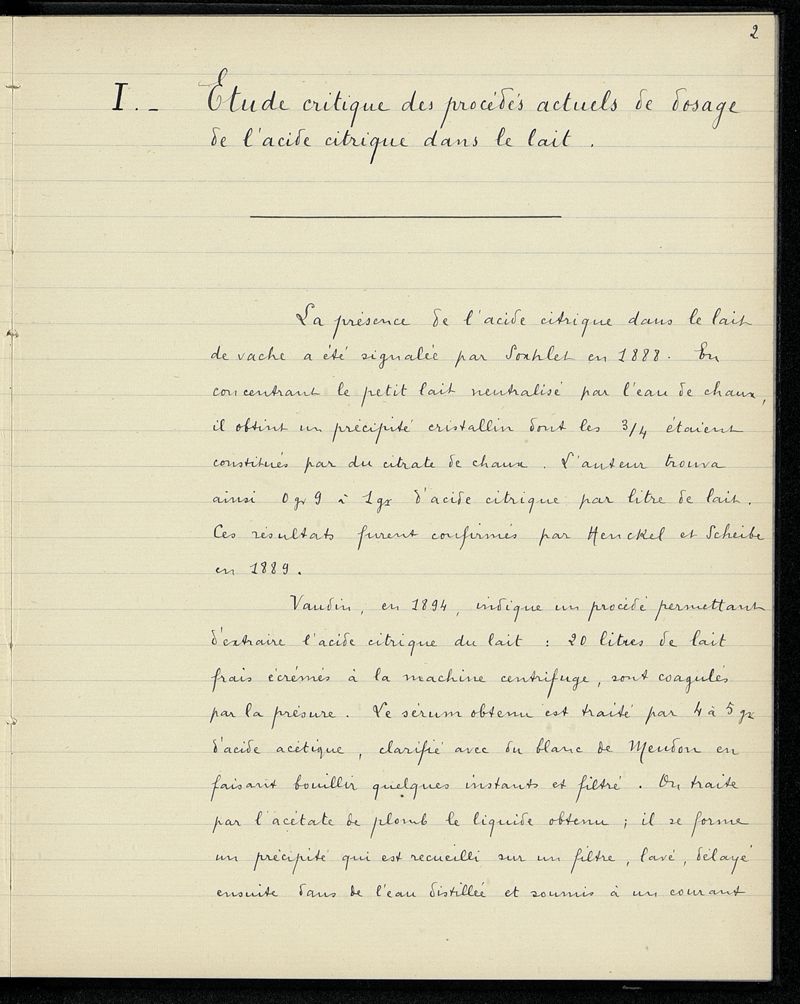 2
I. - Etude critique des procédés actuels de dosage
de l'acide citrique dans le lait.
La présence de l'acide citrique dans le lait
de vache a été signalée par Soxhlet en 1888. En
concentrant le petit lait neutralisé par l'eau de chaux,
il obtint un précipité cristallin dont les 3/4 étaient
constitués par du citrate de chaux. L'auteur trouva
ainsi 0gr9 à 1gr d'acide citrique par litre de lait.
Ces résultats furent confirmés par Henckel et Scheibe
en 1889.
Vaudin, en 1894, indique un procédé permettant
d'extraire l'acide citrique du lait : 20 litres de lait
frais écrémés à la machine centrifuge, sont coagulés
par la présure. Le sérum obtenu est traité par 4 à 5 gr
d'acide acétique, clarifié avec du blanc de Meudon en
faisant bouillir quelques instants et filtré. On traite
par l'acétate de plomb le liquide obtenu ; il se forme
un précipité qui est recueilli sur un filtre, lavé, délayé
ensuite dans de l'eau distillée et soumis à un courant